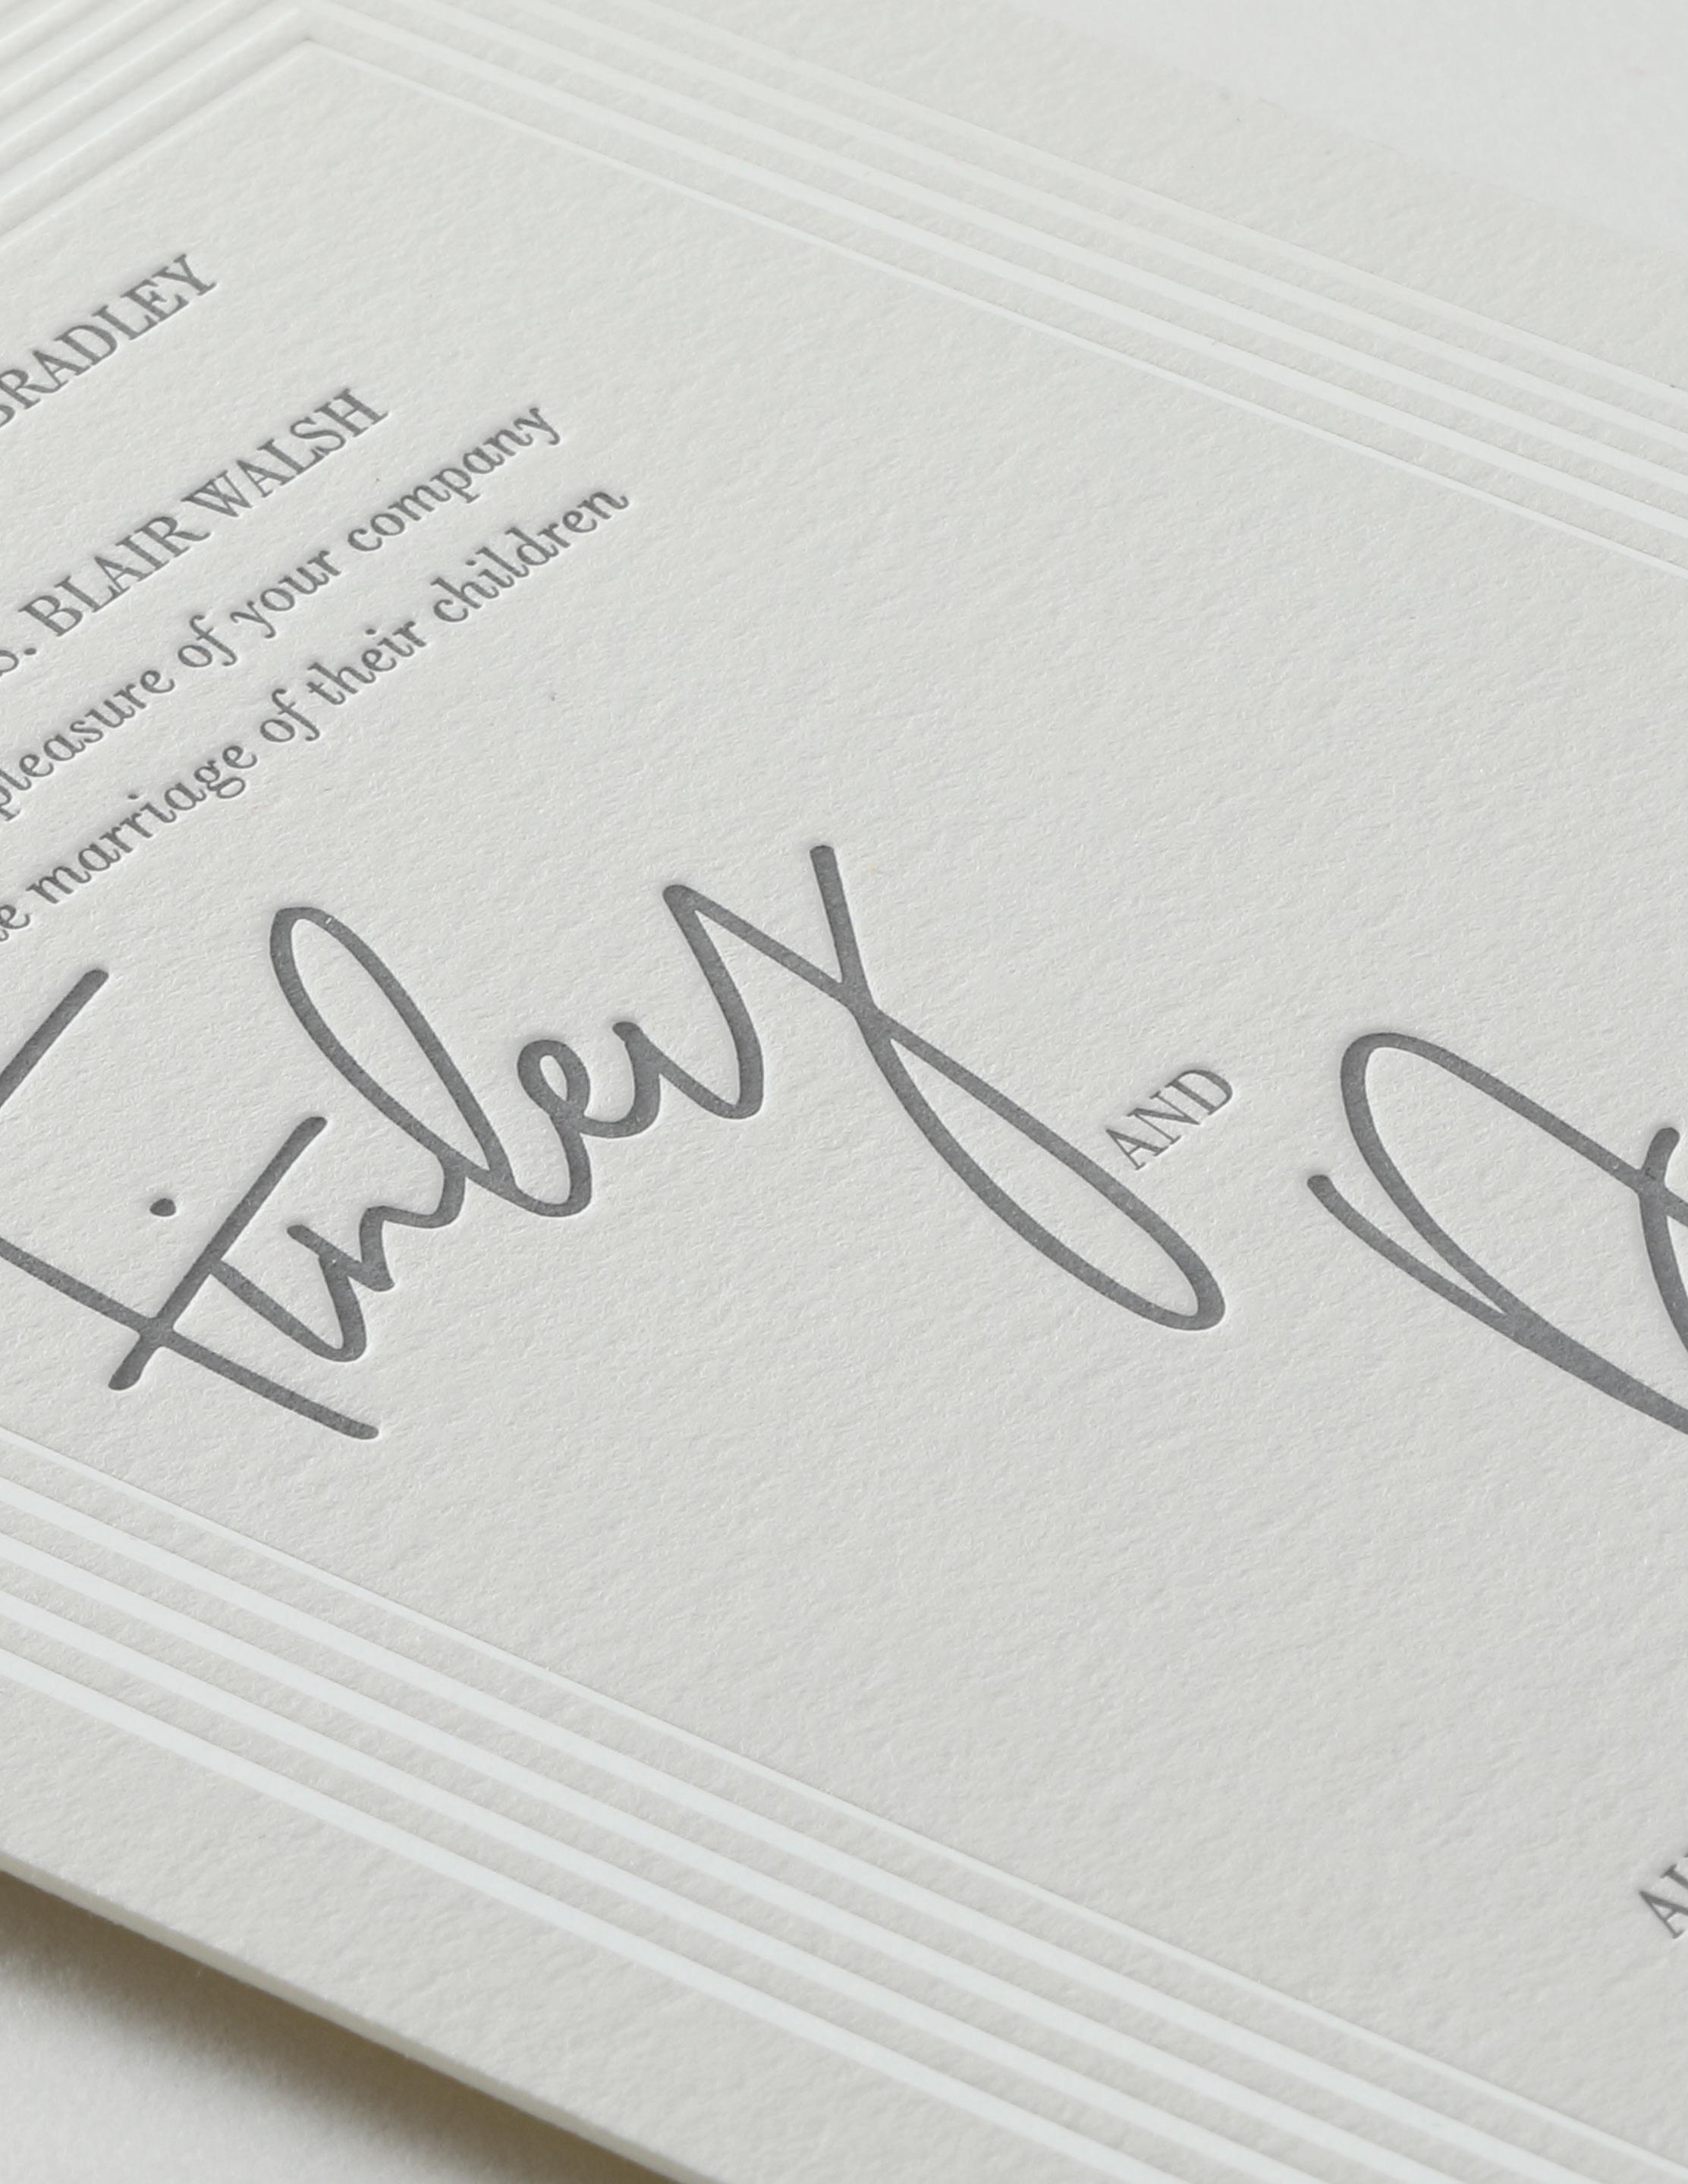 BRADLEY
BLAIR WALSH
pleasure of your company
marriage of their children
Finley AND